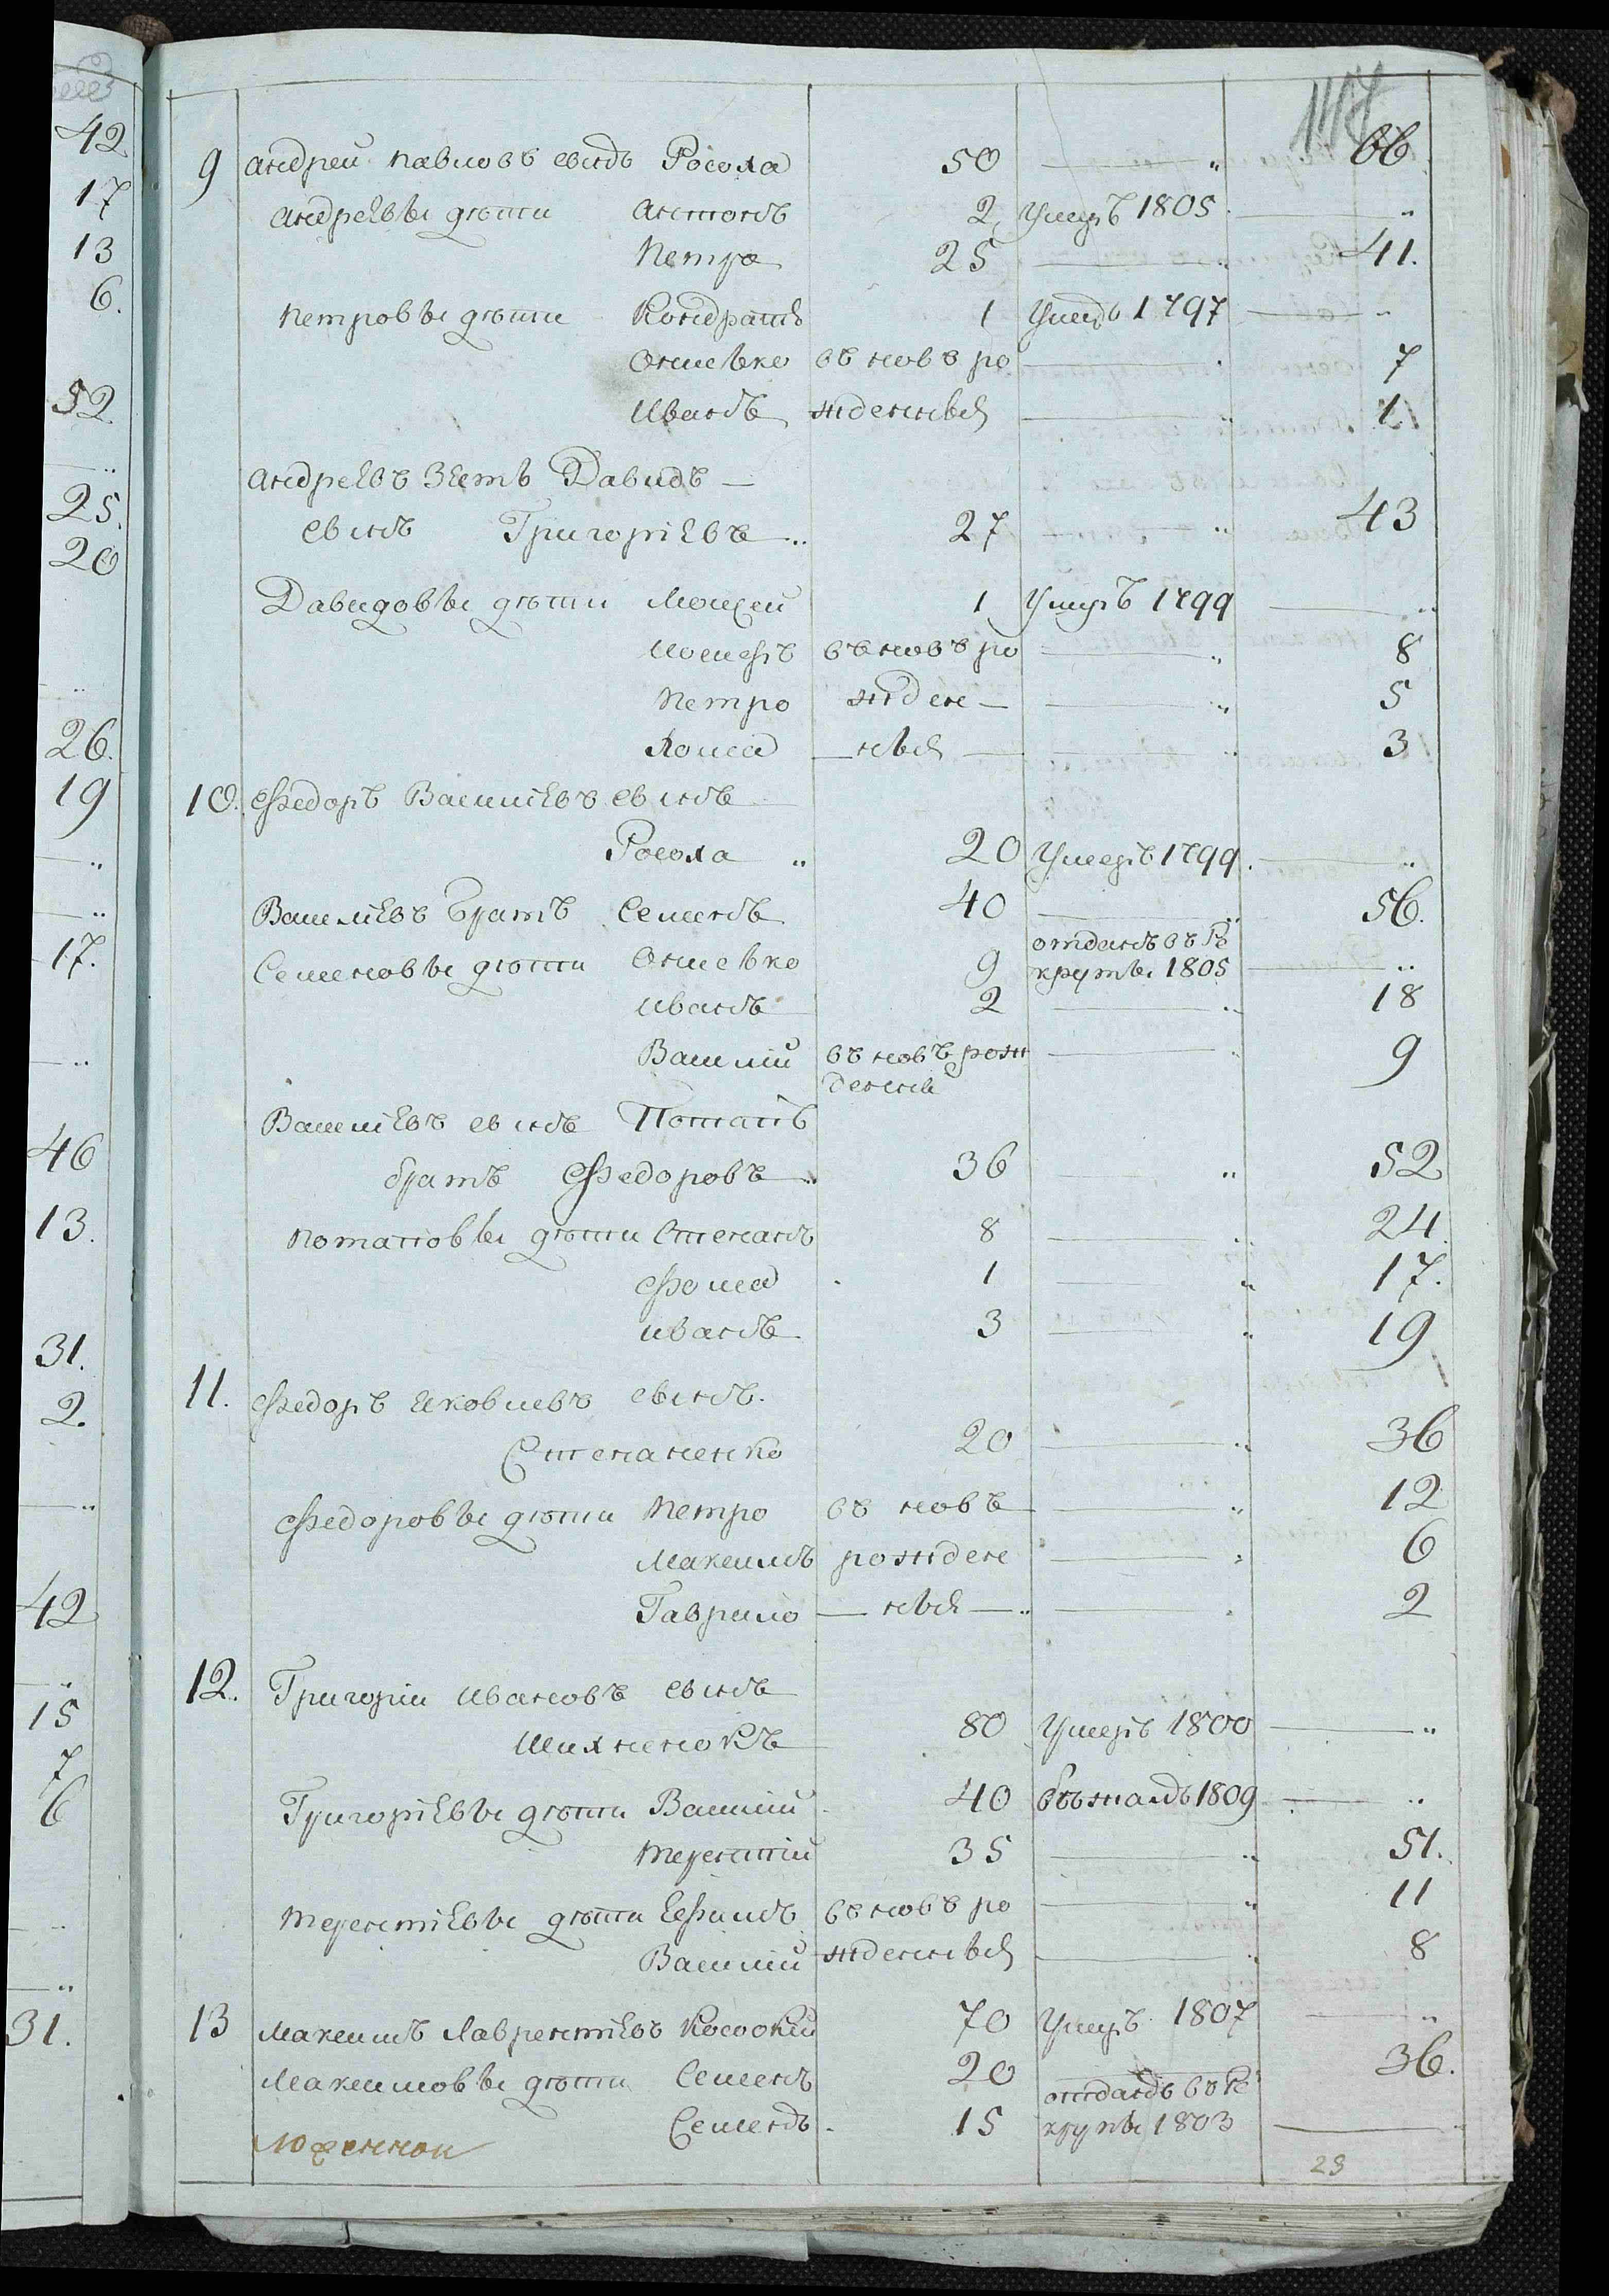 42
17
13
6.
52.
25.
20
26.
19
17.
46
13.
31.
2.
42
15
7
6
31.
9 Андрей Павловъ сынъ Росоха 50 66
Андреевы дѣти Антонъ 2 Умеръ 1805
Петро 25 41.
Петровы дѣти Кондратъ 1 Умеръ 1797
Олисѣко въ новѣ ро 7
Иванъ жденныя 1
Андреевъ Зеть Давидъ
сынъ Григоріевъ 27 43
Давидовы дѣти Моисей 1 Умеръ 1799
въ новѣ ро 8
Петро жден 5
Хома ныя 3
10. Федоръ Василіевъ сынъ
Росоха 20 Умеръ 1799.
Василіевъ братъ Семенъ 40 56.
отданъ въ Ре
Семеновы дѣти Олисѣко 9 круты 1805
Иванъ 2 18
Василій въ новѣ рож 9
денны
Василіевъ сынъ Потапъ
братъ Федоровъ 36 52
Потаповы дѣти Степанъ 8 24
Фома 1 17.
Иванъ 3 19
11. Федоръ Яковлевъ сынъ
Степаненко 20 36
Федоровы дѣти Петро въ новѣ 12
Максимъ рожден 6
Гаврило ныя 2
12. Григорій Ивановъ сынъ
80 Умеръ 1800
Григоріевы дѣти Василій 40 бѣжалъ 1809
Терентій 35 51.
Терентіевы дѣти Ефимъ въ новѣ ро 11
Василій жденныя 8
13 Максимъ Лаврентіевъ Косокій 70 Умеръ 1807
Максимовы дѣти Семенъ 20 36.
отданъ въ Ре
Семенъ 15 круты 1803
23